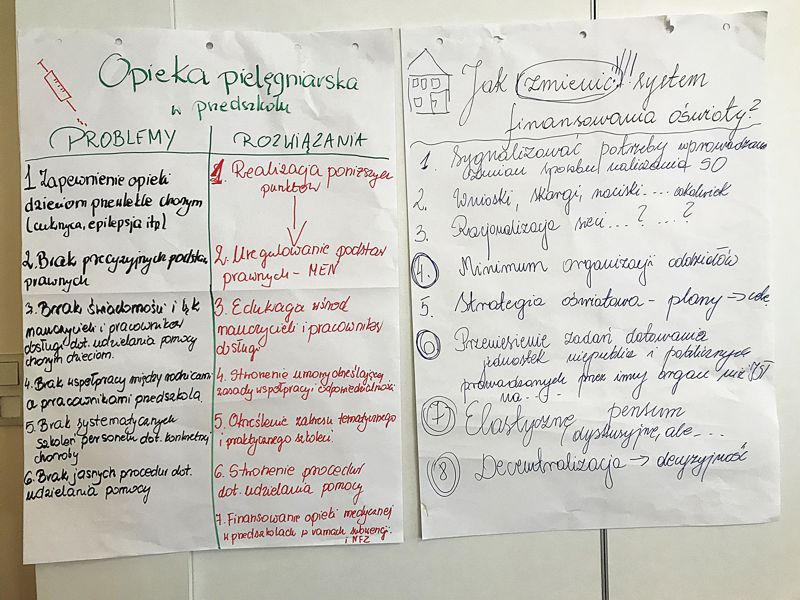 Opieka pielęgniarska
w przedszkolu
PROBLEMY
1 Zapewnienie opieki
dzieciom przewlekle chorym
(cukrzyca, epilepsja itp)
2. Brak precyzyjnych podstaw
prawnych
3. Brak świadomości i lęk
nauczycieli i pracowników
obsługi dot. udzielania pomocy
chorym dzieciom.
4. Brak współpracy między rodzicami
a pracownikami przedszkola
5. Brak systematycznych
szkoleń personelu dot. konkretnej
choroby
6. Brak jasnych procedur dot.
udzielania pomocy
ROZWIĄZANIA
1. Realizacja poniższych
punktów
2. Uregulowanie podstaw
prawnych - MEN
3. Edukacja wśród
nauczycieli i pracowników
obsługi
4. Stworzenie umowy określającej
zasady współpracy i odpowiedzialności
5. Określenie zakresu tematycznego
i praktycznego szkoleń.
6. Stworzenie procedur
dot. udzielania pomocy
7. Finansowanie opieki medycznej
w przedszkolach w ramach subwencji
i NFZ
Jak zmienić!!! system
finansowania oświaty?
1. Sygnalizować potrzeby wprowadzania
zmian sposobu naliczania SO
2. Wnioski, skargi, naciski.... cokolwiek
3. Racjonalizacja sieci...? ...?
4. Minimum organizacji oddziałów
5. Strategia oświatowa - plany → cele
6 Przeniesienie zadań dotowania
jednostek niepublicz i publicznych
prowadzonych przez inny organ niż JST
na...
7 Elastyczne pensum
dyskusyjne, ale....
8 Decentralizacja → decyzyjność